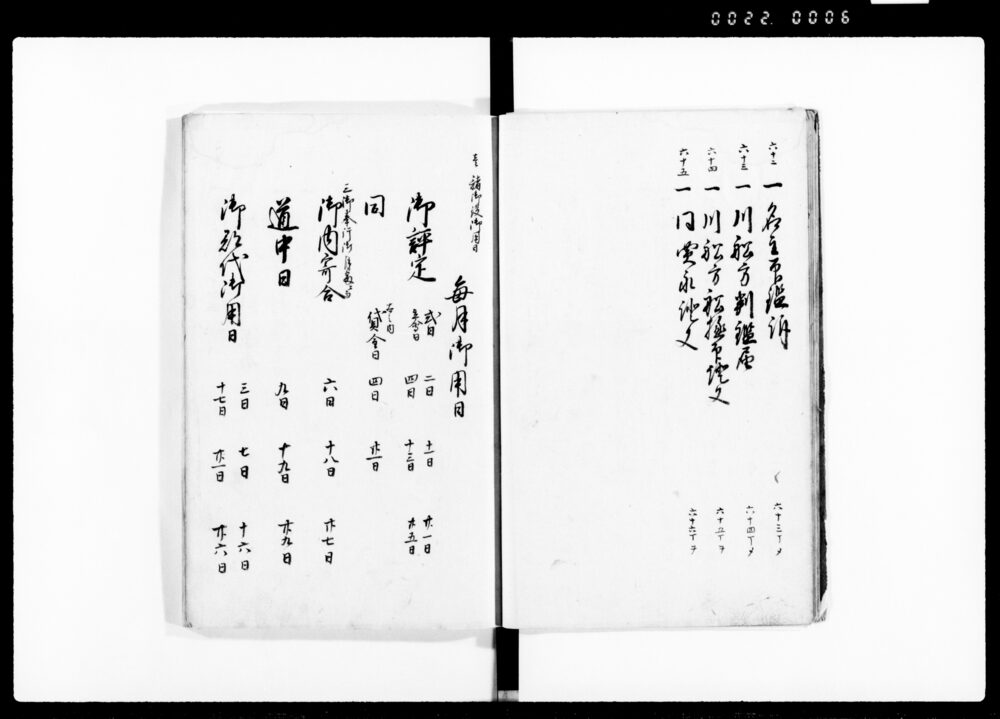 0022.0006
六十二 一 名主印鑑
六十三 一 川船方判鑑届
六十四 一 川船方
六十五 一 同
六十三丁メ
六十四丁メ
六十五丁ヲ
六十六丁ヲ
壱 諸御役御用日
毎月御用日
御評定 式日 二日 十一日 廿一日
立会日 四日 十三日 廿五日
同 金日 四日 廿一日
三御奉行御月番
御内寄合 六日 十八日 廿七日
道中日 九日 十九日 廿九日
御代御用日 三日 七日 十六日
十七日 廿一日 廿六日